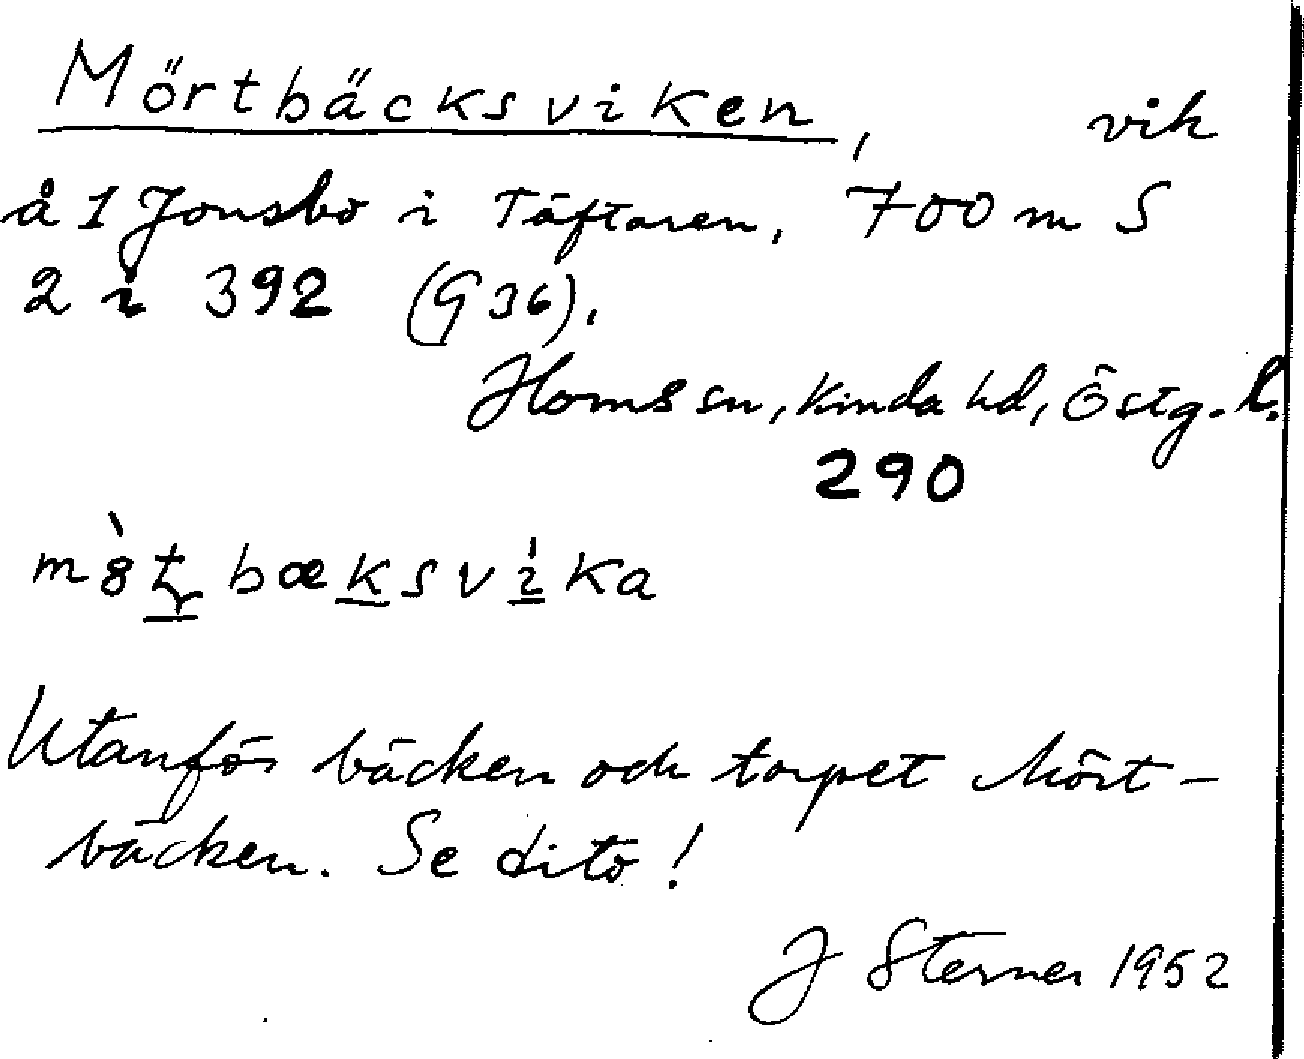 Mörtbäcksviken, vik
å 1 Jonsbo i Täftaren, 700 m S
2 i 392 (G 36).
Horns sn, Kinda hd, Östg. l.
290
m8̀t bæksvika
Utanför bäcken och torpet Mört-
bäcken. Se dito!
J Sterner 1952